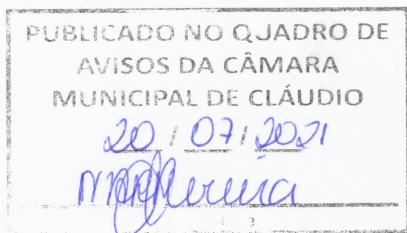 PUBLICADO NO QUADRO DE
AVISOS DA CÂMARA
MUNICIPAL DE CLÁUDIO
20 / 07 / 2021